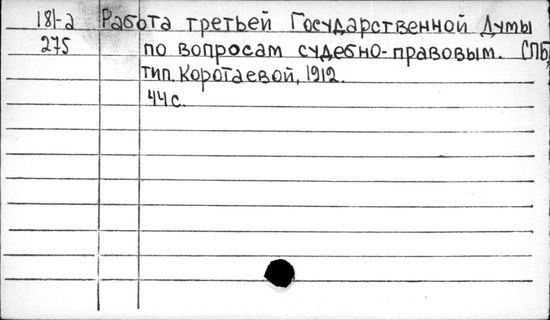 181-а Работа третьей Государственной Думы
275 по вопросам судебно-правовым. СПБ,
тип. Коротаевой, 1912.
44 с.